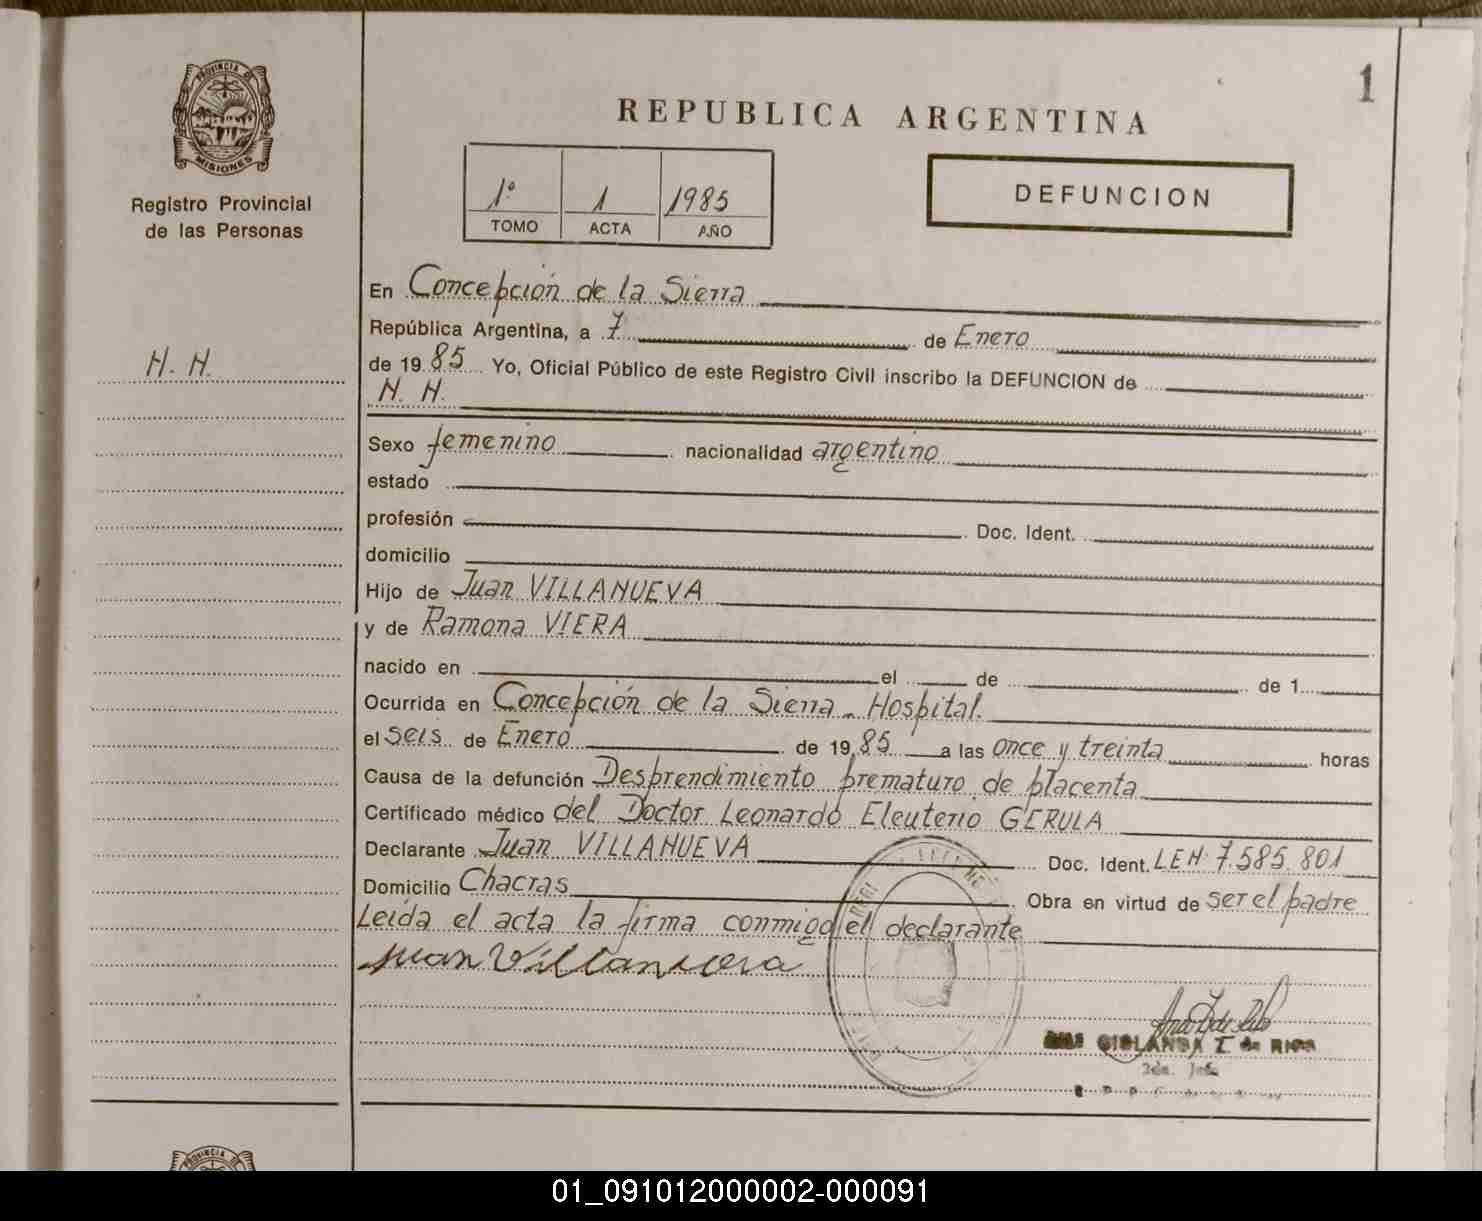 1
PROVINCIA DE
MISIONES
Registro Provincial
de las Personas
N. N.
REPUBLICA ARGENTINA
1º 1 1985
TOMO ACTA AÑO
DEFUNCION
En Concepción de la Sierra
República Argentina, a 7 de Enero
de 1985 Yo, Oficial Público de este Registro Civil inscribo la DEFUNCION de
N. N.
Sexo femenino nacionalidad argentino
estado
profesión Doc. Ident.
domicilio
Hijo de Juan VILLANUEVA
y de Ramona VIERA
nacido en el de de 1
Ocurrida en Concepción de la Sierra - Hospital.
el seis de Enero de 1985 a las once y treinta horas
Causa de la defunción Desprendimiento prematuro de placenta
Certificado médico del Doctor Leonardo Eleuterio GERULA
Declarante Juan VILLANUEVA Doc. Ident. LEN. 7.585.801
Domicilio Chacras Obra en virtud de ser el padre
Leída el acta la firma conmigo el declarante
Juan Villanueva
GISLANDA I de RIOS
2da. Jefe
PROVINCIA DE
01_091012000002-000091